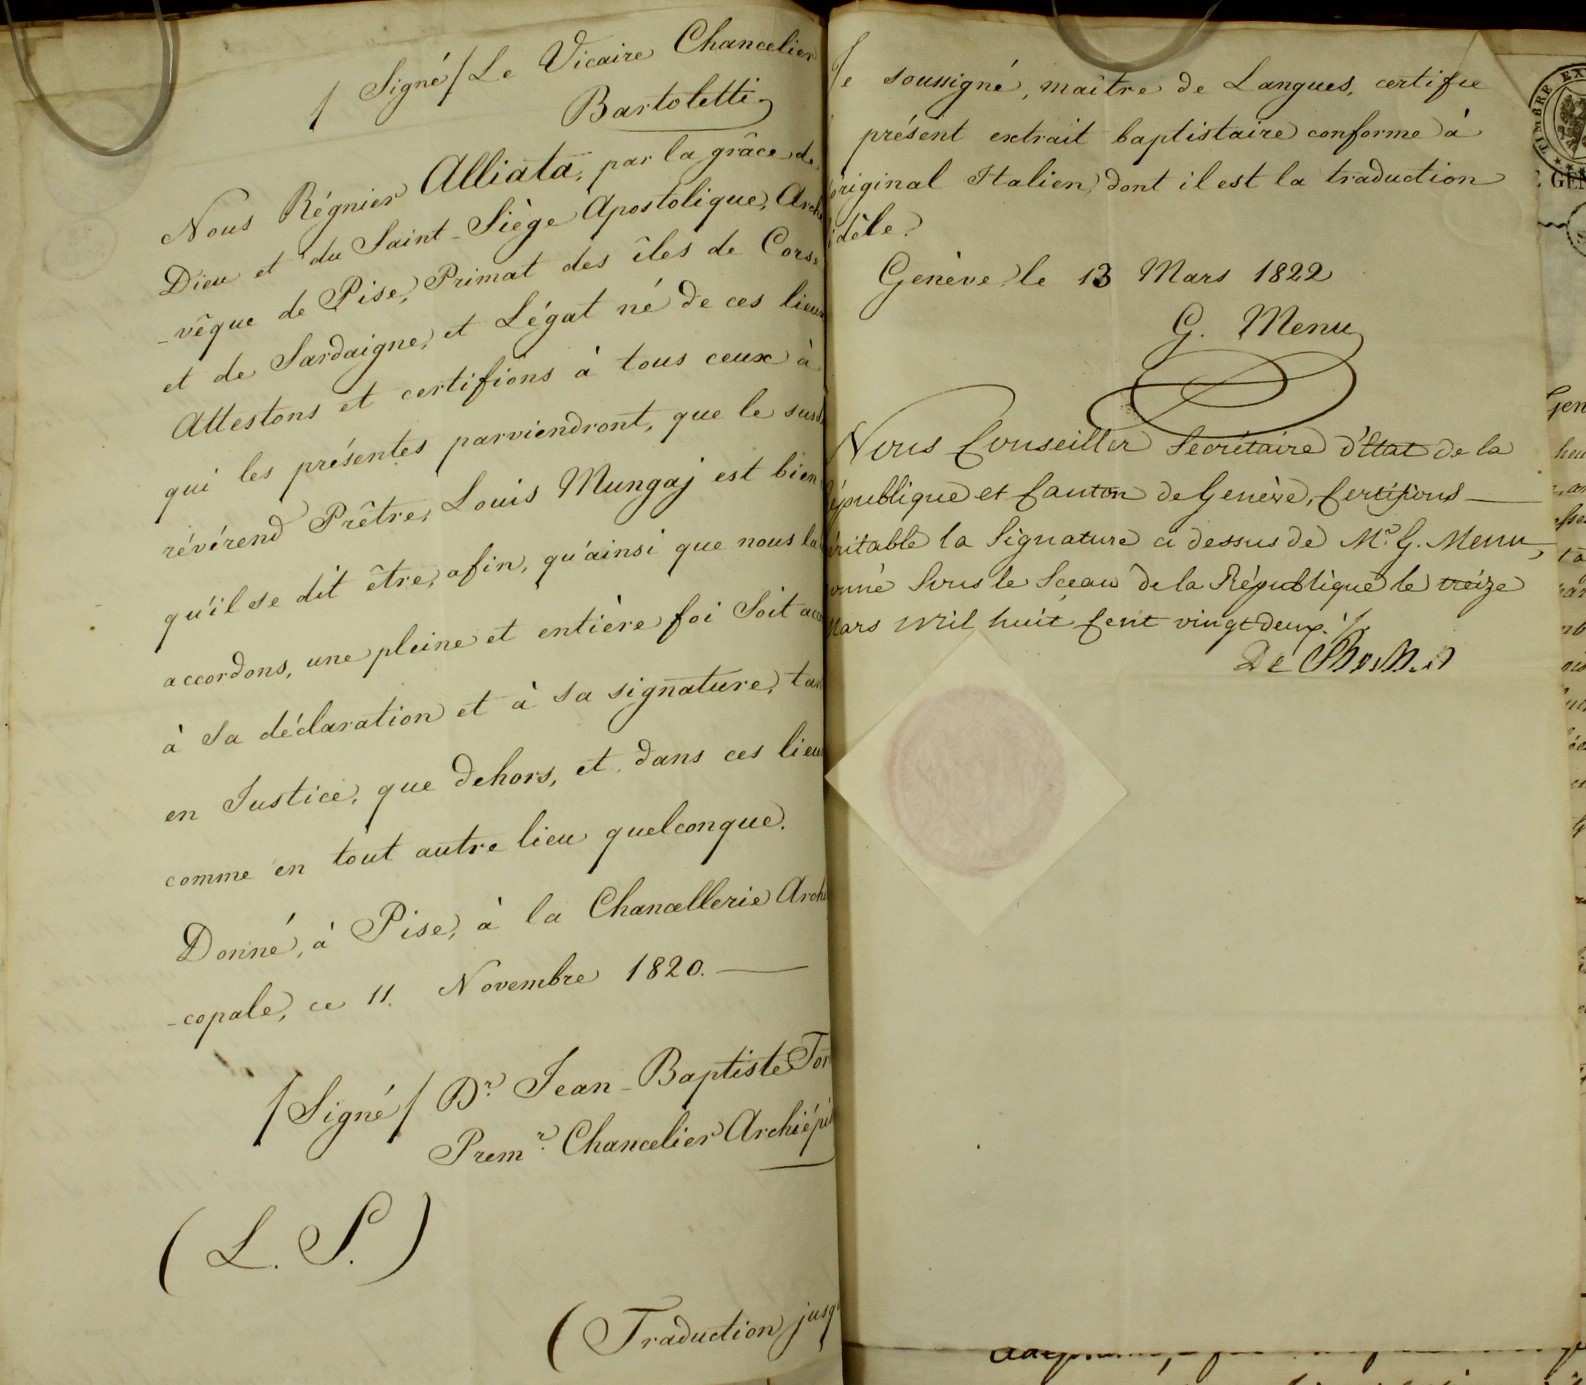 / Signé / Le Vicaire Chancelier
Bartoletti
Nous Régnier Alliata, par la grâce de
Dieu et du Saint-Siège Apostolique, Arch
-vêque de Pise, Primat des îles de Cors
et de Sardaigne, et Légat né de ces lieux
Attestons et certifions à tous ceux à
qui les présentes parviendront, que le sus
révérend Prêtre, Louis Mungaj est bien
qu'il se dit être, afin, qu'ainsi que nous la
accordons, une pleine et entière foi soit acc
à sa déclaration et à sa signature, tan
en Justice, que dehors, et dans ces lieu
comme en tout autre lieu quelconque.
Donné, à Pise, à la Chancellerie Arch
-copale, ce 11. Novembre 1820.
/ Signé / Dr. Jean-Baptiste Tor
Premr. Chancelier Archiép
( L. S. )
( Traduction jusq
Je soussigné, maître de Langues, certifie
présent extrait baptistaire conforme à
original Italien, dont il est la traduction
idèle.
Genève, le 13 Mars 1822
G. Menu
Nous Conseiller Secrétaire d'Etat de la
épublique et Canton de Genève, Certifions
éritable la Signature ci dessus de Mr. G. Menu,
onné sous le Sceau de la République le treize
Mars Mil huit Cent vingt deux.
De
TIMBRE EX
GEN
Gen